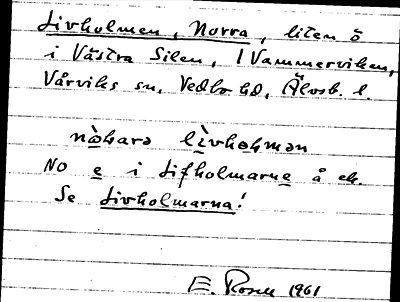 Livholmen, Norra, liten ö
i Västra Silen, i Vammerviken,
Vårviks sn, Vedbo hd, Älvsb. l.
nòhara lìvhohmən
NO e i Lifholmarne å ek.
Se Livholmarna!
E. Rosell 1961